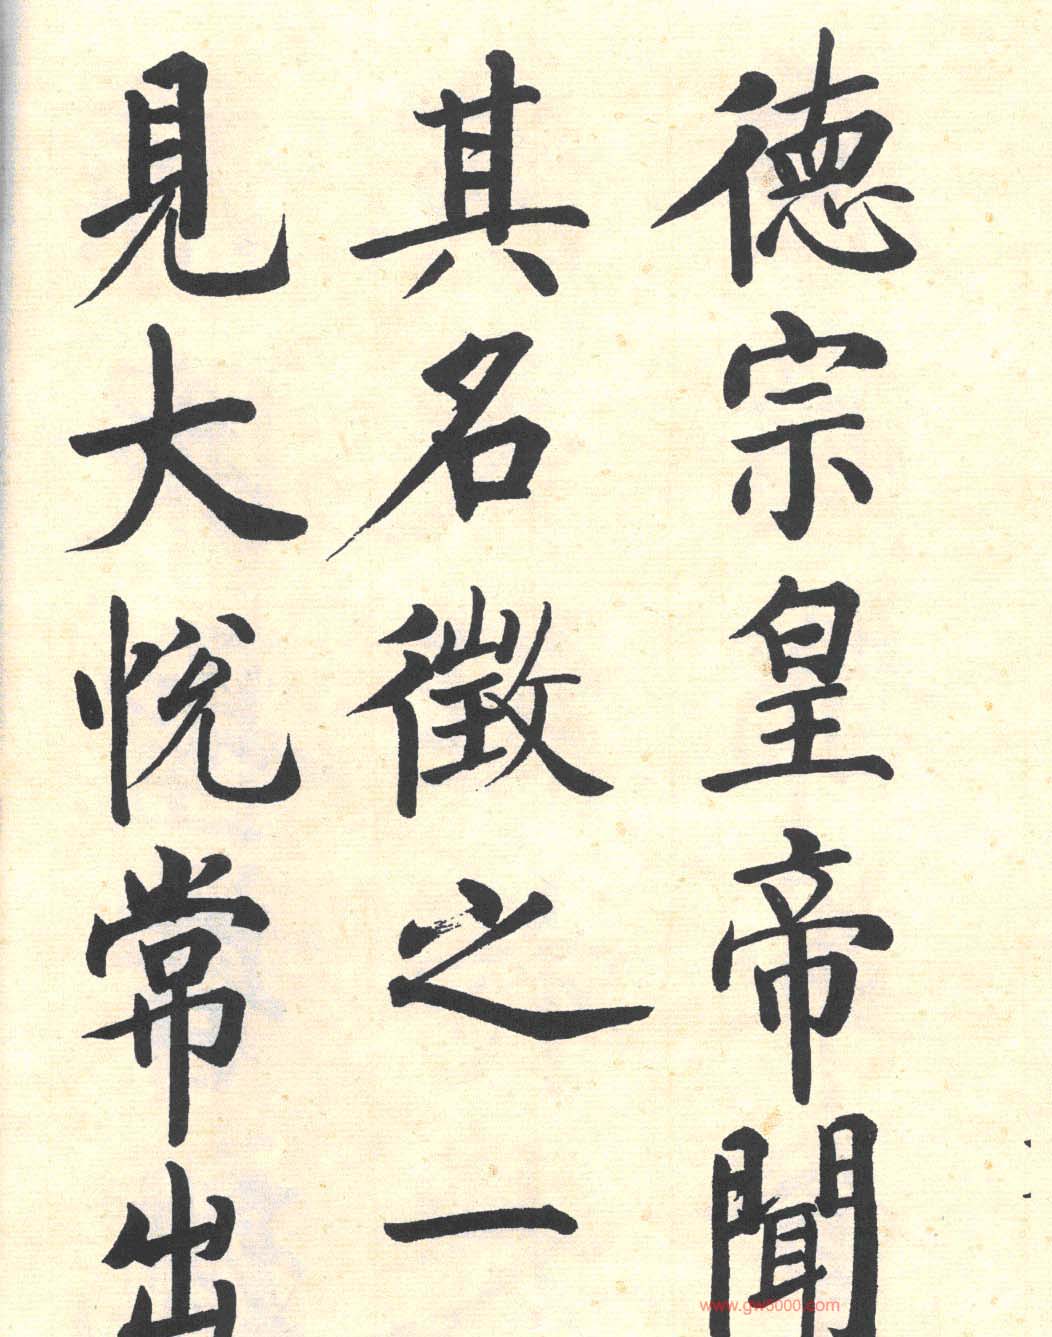 德宗皇帝聞
其名徵之一
見大悅常出
www.gw5000.com